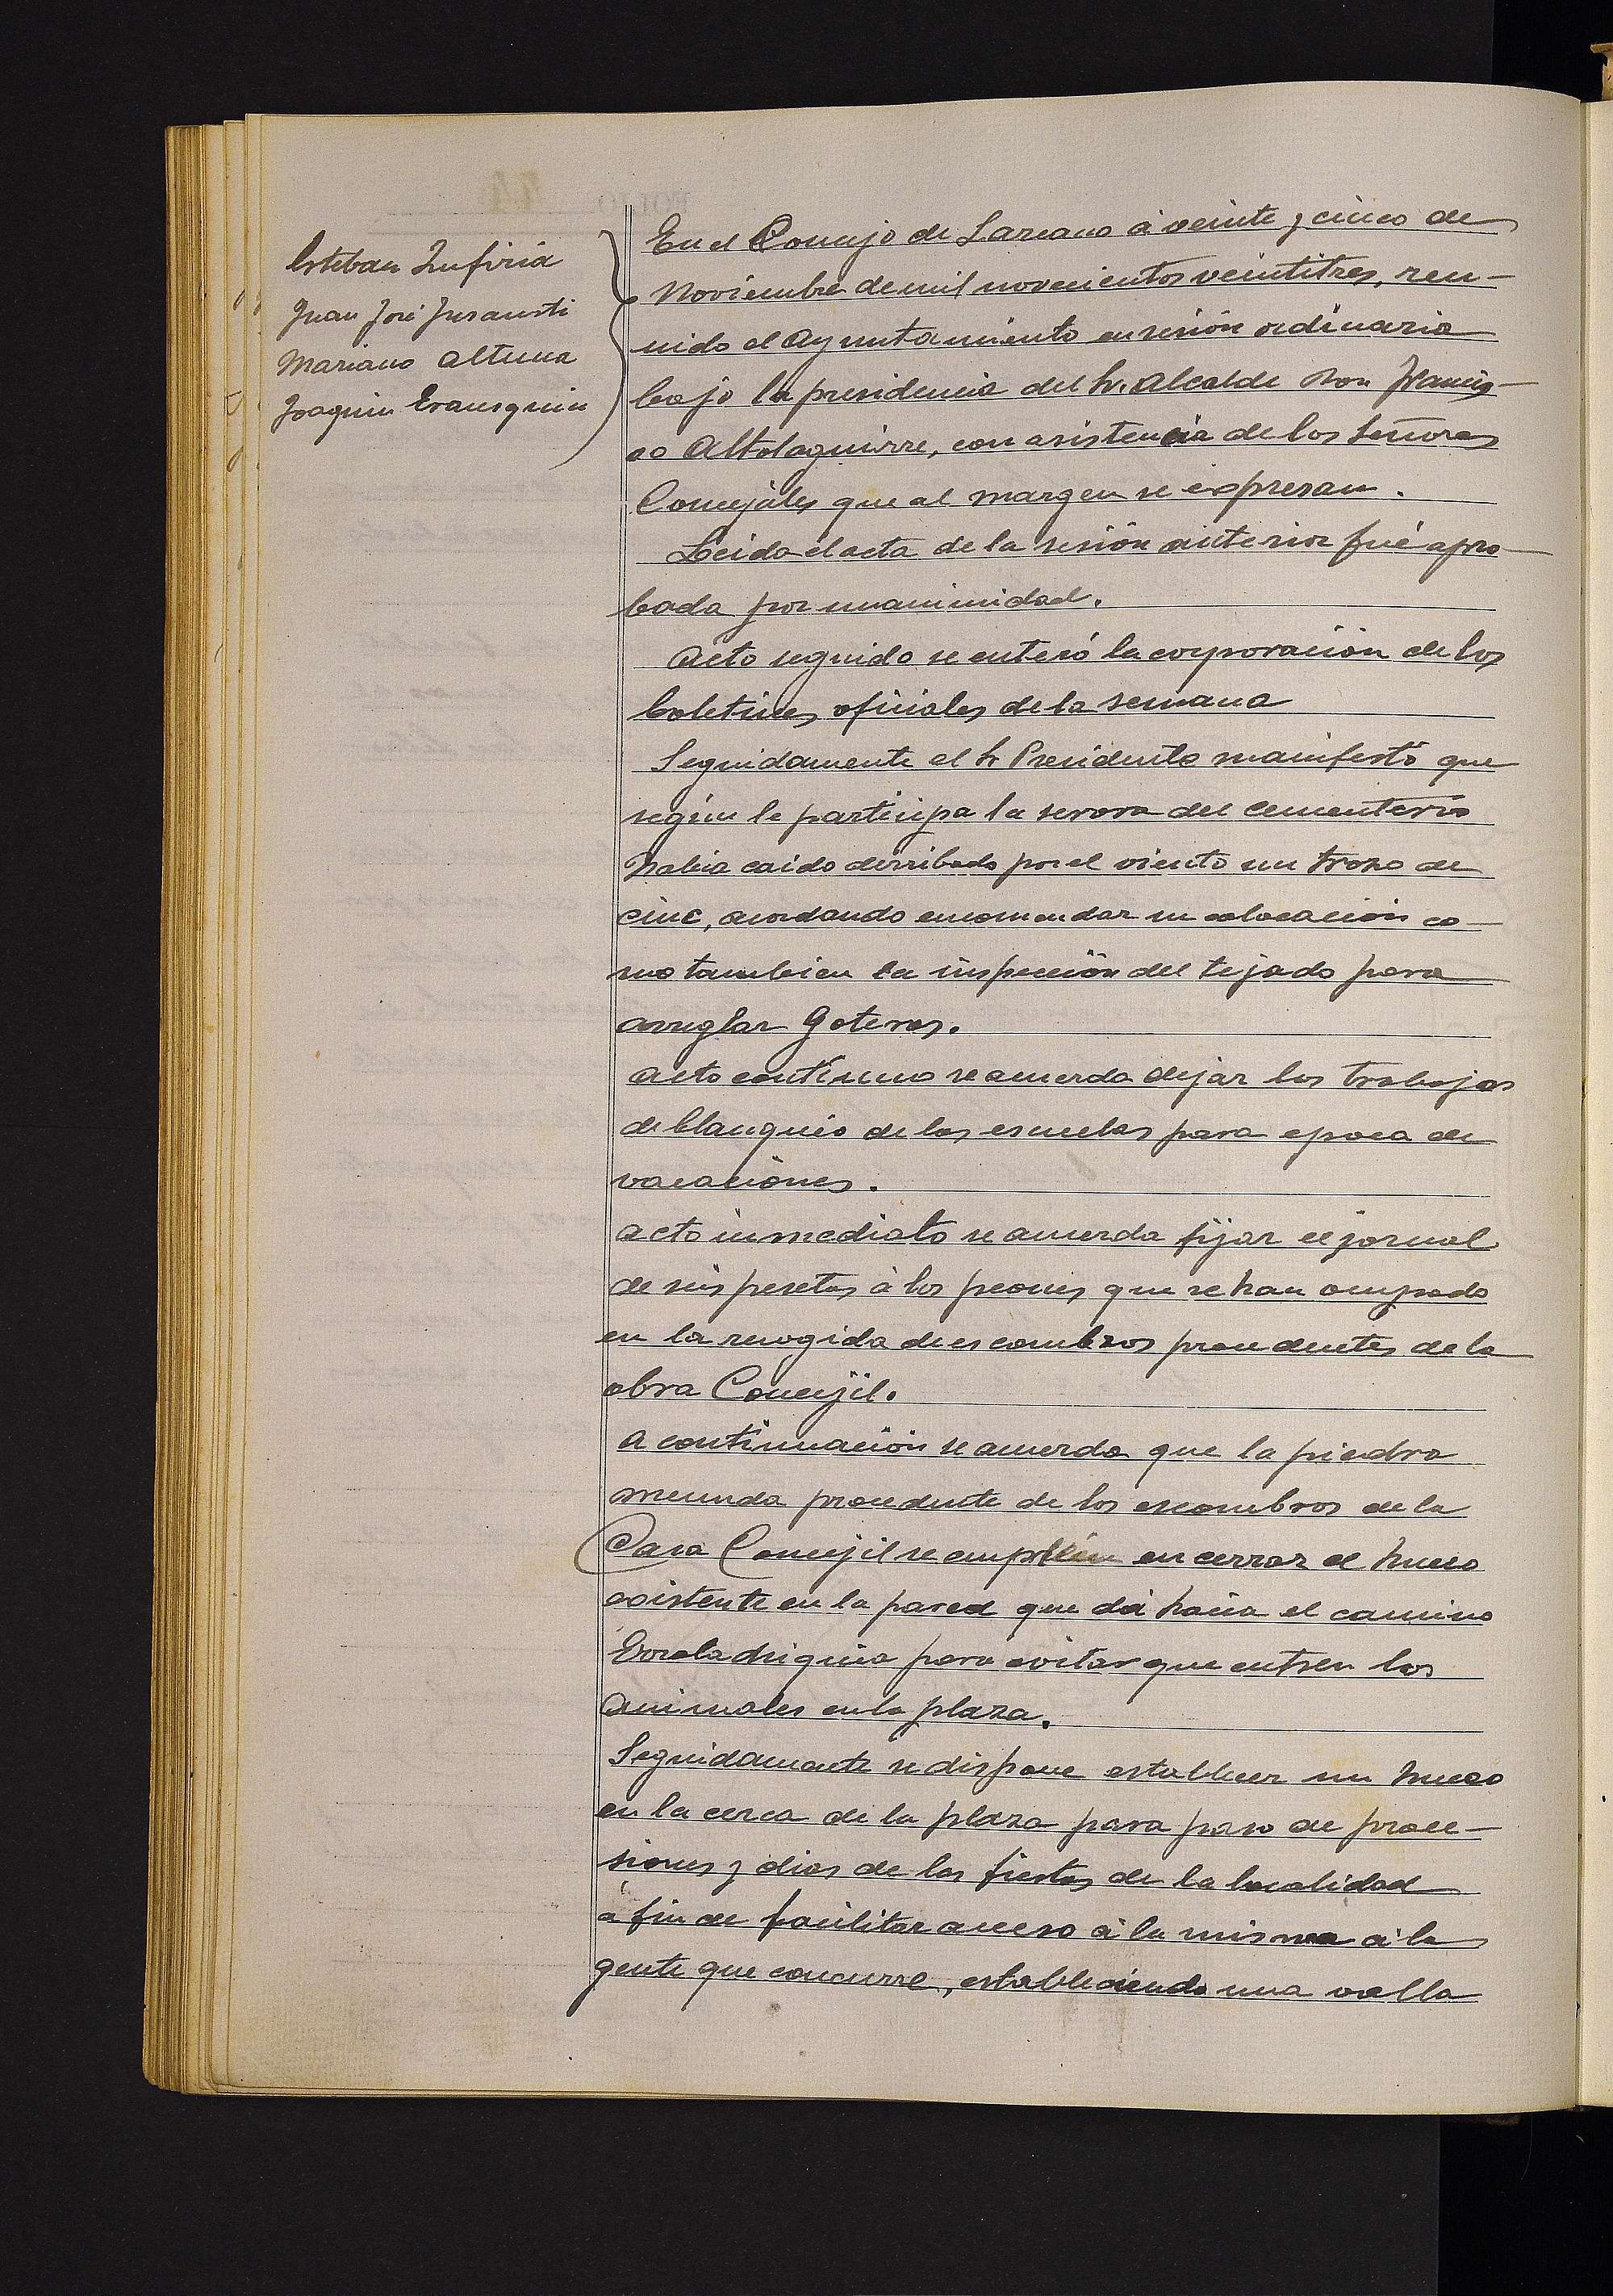 Esteban Zufiria
Juan José Jusausti
Mariano Altuna
Joaquin Erausquin
En el Concejo de Lazcano á veinte y cinco de
Noviembre de mil novecientos veintitres, reu-
nido el Ayuntamiento en sesión ordinaria
bajo la presidencia del Sr. Alcalde Don Francis-
co Altolaguirre, con asistencia de los Señores
Concejales que al margen se expresan.
Leida el acta de la sesión anterior fué apro-
bada por unanimidad.
Acto seguido se enteró la corporación de los
boletines oficiales de la semana
Seguidamente el Sr Presidente manifestó que
según le participa la serora del cementerio
habia caido derribado por el viento un trozo de
cinc, acordando encomendar su colocación co-
mo tambien la inspección del tejado para
arreglar goteras.
Acto contínuo se acuerda dejar los trabajos
de blanqueo de las escuelas para epoca de
vacaciones.
Acto inmediato se acuerda fijar el jornal
de seis pesetas á los peones que se han ocupado
en la recogida de escombros procedentes de la
obra Concejil.
A continuación se acuerda que la piedra
menuda procedente de los escombros de la
Casa Concejil se empleen en cerrar el hueco
existente en la pared que dá hacia el camino
para evitar que entren los
animales en la plaza.
Seguidamente se dispone establecer un hueco
en la cerca de la plaza para paso de proce-
siones y dias de las fiestas de la localidad
á fin de facilitar acceso á la misma á la
gente que concurre, estableciendo una valla